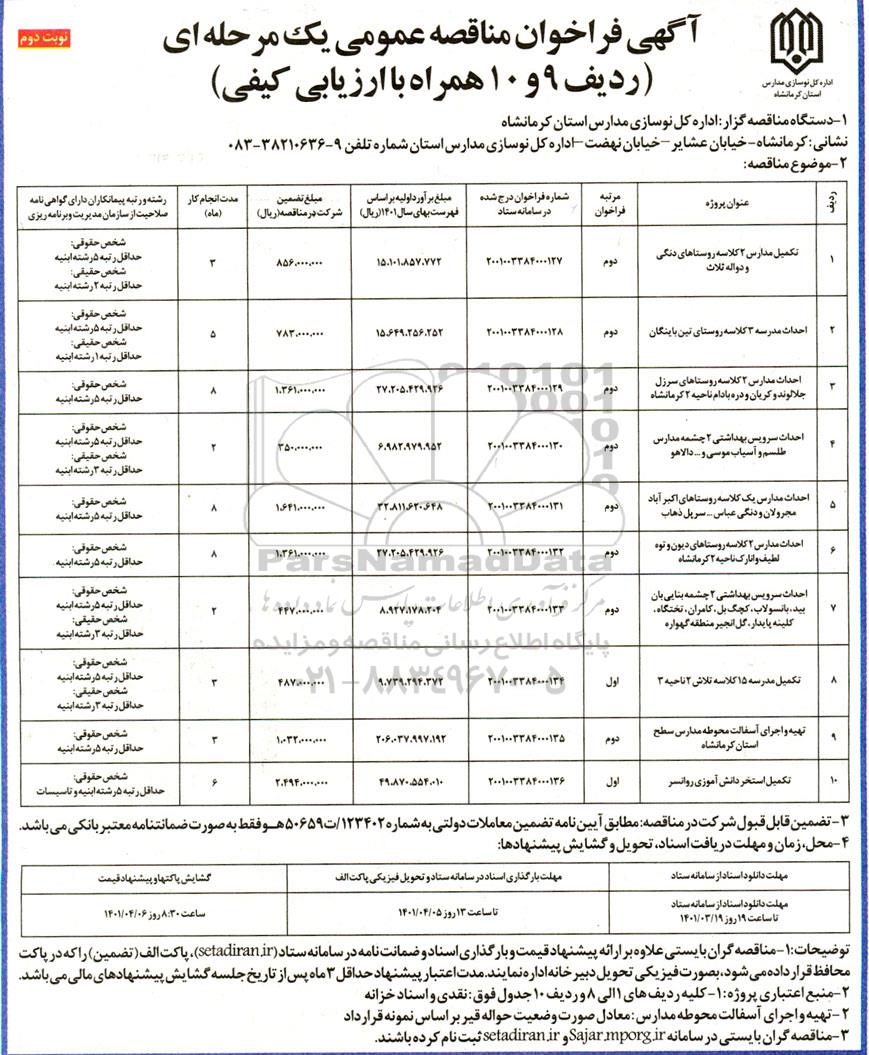 نوبت دوم
آگهی فراخوان مناقصه عمومی یک مرحله ای
(ردیف ۹ و ۱۰ همراه با ارزیابی کیفی)
اداره کل نوسازی مدارس
استان کرمانشاه
۱-دستگاه مناقصه گزار: اداره کل نوسازی مدارس استان کرمانشاه
نشانی: کرمانشاه-خیابان عشایر-خیابان نهضت-اداره کل نوسازی مدارس استان شماره تلفن ۹-۳۸۲۱۰۶۳۶-۰۸۳
۲-موضوع مناقصه:
ردیف | عنوان پروژه | مرتبه فراخوان | شماره فراخوان درج شده در سامانه ستاد | مبلغ برآورد اولیه براساس فهرست بهای سال ۱۴۰۱(ریال) | مبلغ تضمین شرکت در مناقصه(ریال) | مدت انجام کار (ماه) | رشته و رتبه پیمانکاران دارای گواهی نامه صلاحیت از سازمان مدیریت و برنامه ریزی
۱ | تکمیل مدارس ۲ کلاسه روستاهای دنگی و دواله ثلاث | دوم | ۲۰۰۱۰۰۳۳۸۴۰۰۰۱۲۷ | ۱۵.۱۰۱.۸۵۷.۷۷۲ | ۸۵۶.۰۰۰.۰۰۰ | ۳ | شخص حقوقی: حداقل رتبه ۵ رشته ابنیه شخص حقیقی: حداقل رتبه ۲ رشته ابنیه
۲ | احداث مدرسه ۳ کلاسه روستای تین باینگان | دوم | ۲۰۰۱۰۰۳۳۸۴۰۰۰۱۲۸ | ۱۵.۶۴۹.۲۵۶.۲۵۲ | ۷۸۳.۰۰۰.۰۰۰ | ۵ | شخص حقوقی: حداقل رتبه ۵ رشته ابنیه شخص حقیقی: حداقل رتبه ۱ رشته ابنیه
۳ | احداث مدارس ۲ کلاسه روستاهای سرزل جلالوند و کریان و دره بادام ناحیه ۲ کرمانشاه | دوم | ۲۰۰۱۰۰۳۳۸۴۰۰۰۱۲۹ | ۲۷.۲۰۵.۴۲۹.۹۲۶ | ۱.۳۶۱.۰۰۰.۰۰۰ | ۸ | شخص حقوقی: حداقل رتبه ۵ رشته ابنیه
۴ | احداث سرویس بهداشتی ۲ چشمه مدارس طلسم و آسیاب موسی و... دالاهو | دوم | ۲۰۰۱۰۰۳۳۸۴۰۰۰۱۳۰ | ۶.۹۸۲.۹۷۹.۹۵۲ | ۳۵۰.۰۰۰.۰۰۰ | ۲ | شخص حقوقی: حداقل رتبه ۵ رشته ابنیه شخص حقیقی: حداقل رتبه ۳ رشته ابنیه
۵ | احداث مدارس یک کلاسه روستاهای اکبر آباد مجرولان و دنگی عباس... سرپل ذهاب | دوم | ۲۰۰۱۰۰۳۳۸۴۰۰۰۱۳۱ | ۳۲.۸۱۱.۶۲۰.۶۴۸ | ۱.۶۴۱.۰۰۰.۰۰۰ | ۸ | شخص حقوقی: حداقل رتبه ۵ رشته ابنیه
۶ | احداث مدارس ۲ کلاسه روستاهای دیون و توه لطیف و انارک ناحیه ۲ کرمانشاه | دوم | ۲۰۰۱۰۰۳۳۸۴۰۰۰۱۳۲ | ۲۷.۲۰۵.۴۲۹.۹۲۶ | ۱.۳۶۱.۰۰۰.۰۰۰ | ۸ | شخص حقوقی: حداقل رتبه ۵ رشته ابنیه
۷ | احداث سرویس بهداشتی ۲ چشمه بنایی بان بید، بانسولاب، کچگ بل، کامران، تختگاه، کلینه پایدار، گل انجیر منطقه گهواره | دوم | ۲۰۰۱۰۰۳۳۸۴۰۰۰۱۳۳ | ۸.۹۲۷.۱۷۸.۲۰۴ | ۴۴۷.۰۰۰.۰۰۰ | ۲ | شخص حقوقی: حداقل رتبه ۵ رشته ابنیه شخص حقیقی: حداقل رتبه ۳ رشته ابنیه
۸ | تکمیل مدرسه ۱۵ کلاسه تلاش ۲ ناحیه ۳ | اول | ۲۰۰۱۰۰۳۳۸۴۰۰۰۱۳۴ | ۹.۷۳۹.۲۹۴.۳۷۲ | ۴۸۷.۰۰۰.۰۰۰ | ۳ | شخص حقوقی: حداقل رتبه ۵ رشته ابنیه شخص حقیقی: حداقل رتبه ۳ رشته ابنیه
۹ | تهیه و اجرای آسفالت محوطه مدارس سطح استان کرمانشاه | دوم | ۲۰۰۱۰۰۳۳۸۴۰۰۰۱۳۵ | ۲۰۶.۰۳۷.۹۹۷.۱۹۲ | ۱.۰۳۲.۰۰۰.۰۰۰ | ۳ | شخص حقوقی: حداقل رتبه ۵ رشته ابنیه
۱۰ | تکمیل استخر دانش آموزی روانسر | اول | ۲۰۰۱۰۰۳۳۸۴۰۰۰۱۳۶ | ۴۹.۸۷۰.۵۵۴.۰۱۰ | ۲.۴۹۴.۰۰۰.۰۰۰ | ۶ | شخص حقوقی: حداقل رتبه ۵ رشته ابنیه و تاسیسات
ParsNamadData
مرکز فرآوری اطلاعات پارس نماد داده ها
پایگاه اطلاع رسانی مناقصه و مزایده
۰۲۱-۸۸۳۴۹۶۷۰-۵
۳- تضمین قابل قبول شرکت در مناقصه: مطابق آیین نامه تضمین معاملات دولتی به شماره ۱۲۳۴۰۲/ت۵۰۶۵۹هـ و فقط به صورت ضمانتنامه معتبر بانکی می باشد.
۴-محل، زمان و مهلت دریافت اسناد، تحویل و گشایش پیشنهادها:
مهلت دانلود اسناد از سامانه ستاد | مهلت بارگذاری اسناد در سامانه ستاد و تحویل فیزیکی پاکت الف | گشایش پاکتها و پیشنهاد قیمت
مهلت دانلود اسناد از سامانه ستاد تا ساعت ۱۹ روز ۱۴۰۱/۰۳/۱۹ | تا ساعت ۱۳ روز ۱۴۰۱/۰۴/۰۵ | ساعت ۸:۳۰ روز ۱۴۰۱/۰۴/۰۶
توضیحات: ۱-مناقصه گران بایستی علاوه بر ارائه پیشنهاد قیمت و بارگذاری اسناد و ضمانت نامه در سامانه ستاد (setadiran.ir)، پاکت الف (تضمین) را که در پاکت
محافظ قرار داده می شود، بصورت فیزیکی تحویل دبیرخانه اداره نمایند. مدت اعتبار پیشنهاد حداقل ۳ ماه پس از تاریخ جلسه گشایش پیشنهادهای مالی می باشد.
۲-منبع اعتباری پروژه: ۱-کلیه ردیف های ۱ الی ۸ و ردیف ۱۰ جدول فوق: نقدی و اسناد خزانه
۲-تهیه و اجرای آسفالت محوطه مدارس: معادل صورت وضعیت حواله قیر بر اساس نمونه قرارداد
۳-مناقصه گران بایستی در سامانه Sajar.mporg.ir و setadiran.ir ثبت نام کرده باشند.